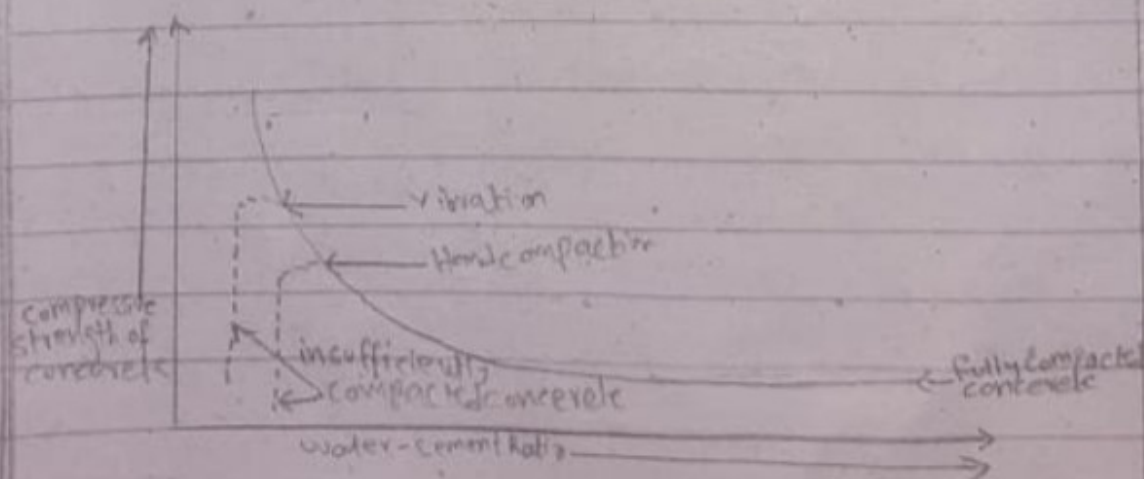 vibration
Handcompaction
compressive
strength of
concrete
insufficiently
compacted concerete
fullycompacted
concerete
water-cement Ratio